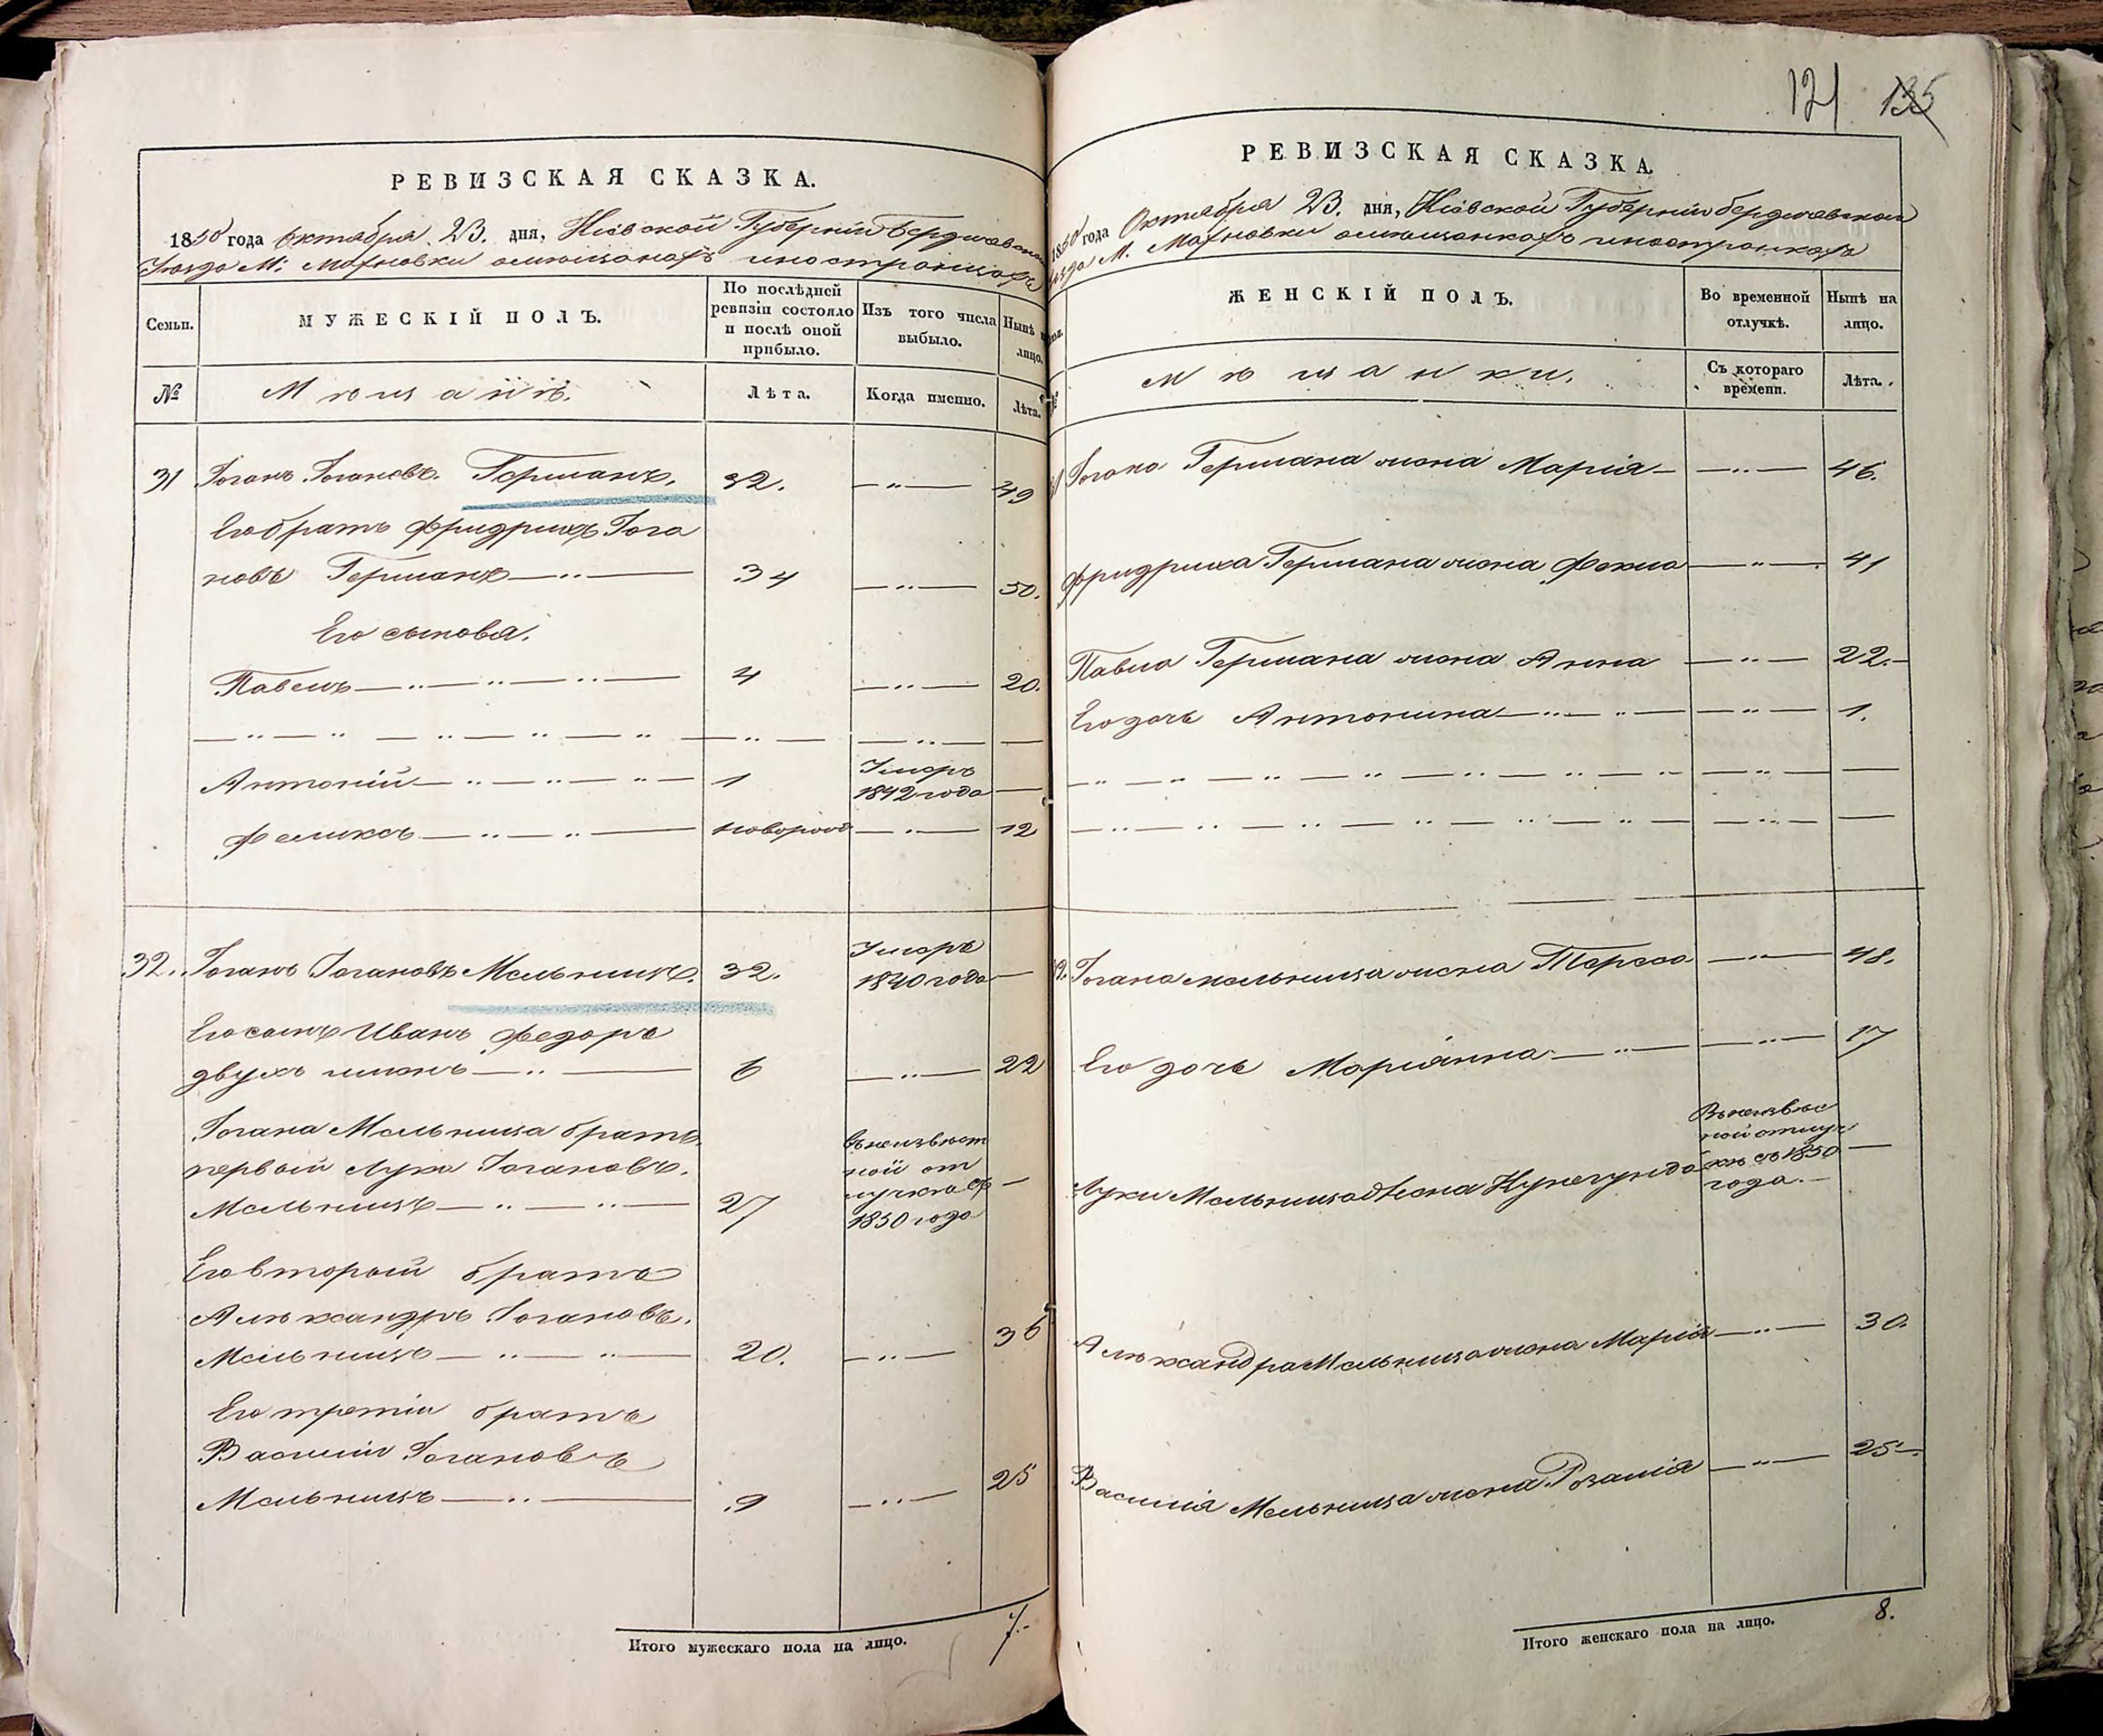 РЕВИЗСКАЯ СКАЗКА.
1850 года Октября 23. дня, Кіевской Губерніи Бердичевскаго
Уезда М: Махновки о мещанахъ иностранцахъ
Семьи.
МУЖЕСКІЙ ПОЛЪ.
По послѣдней
ревизіи состояло
и послѣ оной
прибыло.
Изъ того числа
выбыло.
Нынѣ на
лицо.
№
Мѣщане.
Лѣта.
Когда именно.
Лѣта.
31 Іоганъ Іогановъ Германъ. 32. 49
Его братъ Фридрихъ Іога
новъ Германъ 34 50.
Его сыновья.
Павелъ 4 20.
Антоній 1 Умеръ
1842 года
Феликсъ новорожд 12
32. Іоганъ Іогановъ Мельницъ. 32. Умеръ
1840 года
Его сынъ Иванъ Федоръ
двухъ именъ 6 22
Іогана Мельница братъ
первый Лука Іогановъ.
Мельницъ 27
въ неизвест
ной от
лучке съ
1850 года
Его вторый братъ
Александръ Іогановъ.
Мельницъ 20. 36
Его третій братъ
Василій Іогановъ
Мельницъ 9 25
Итого мужескаго пола на лицо. 7.
121 135
РЕВИЗСКАЯ СКАЗКА.
1850 года Октября 23. дня, Кіевской Губерніи Бердичевскаго
Уезда М. Махновки о мещанкахъ иностранкахъ
ЖЕНСКІЙ ПОЛЪ.
Во временной
отлучкѣ.
Нынѣ на
лицо.
№
Мѣщанки.
Съ котораго
времени.
Лѣта.
31 Іогана Германа жена Марія 46.
Фридриха Германа жена Фекла 41
Павла Германа жена Анна 22.
Его дочь Антонина 1.
32. Іогана Мельница жена Тереса 48.
Его дочь Маріанна 17
Луки Мельница жена Кунегунда
В неизвес
ной отлуч
ке съ 1850
года.
Александра Мельница жена Марія 30.
Василія Мельница жена Розалія 25
Итого женскаго пола на лицо. 8.